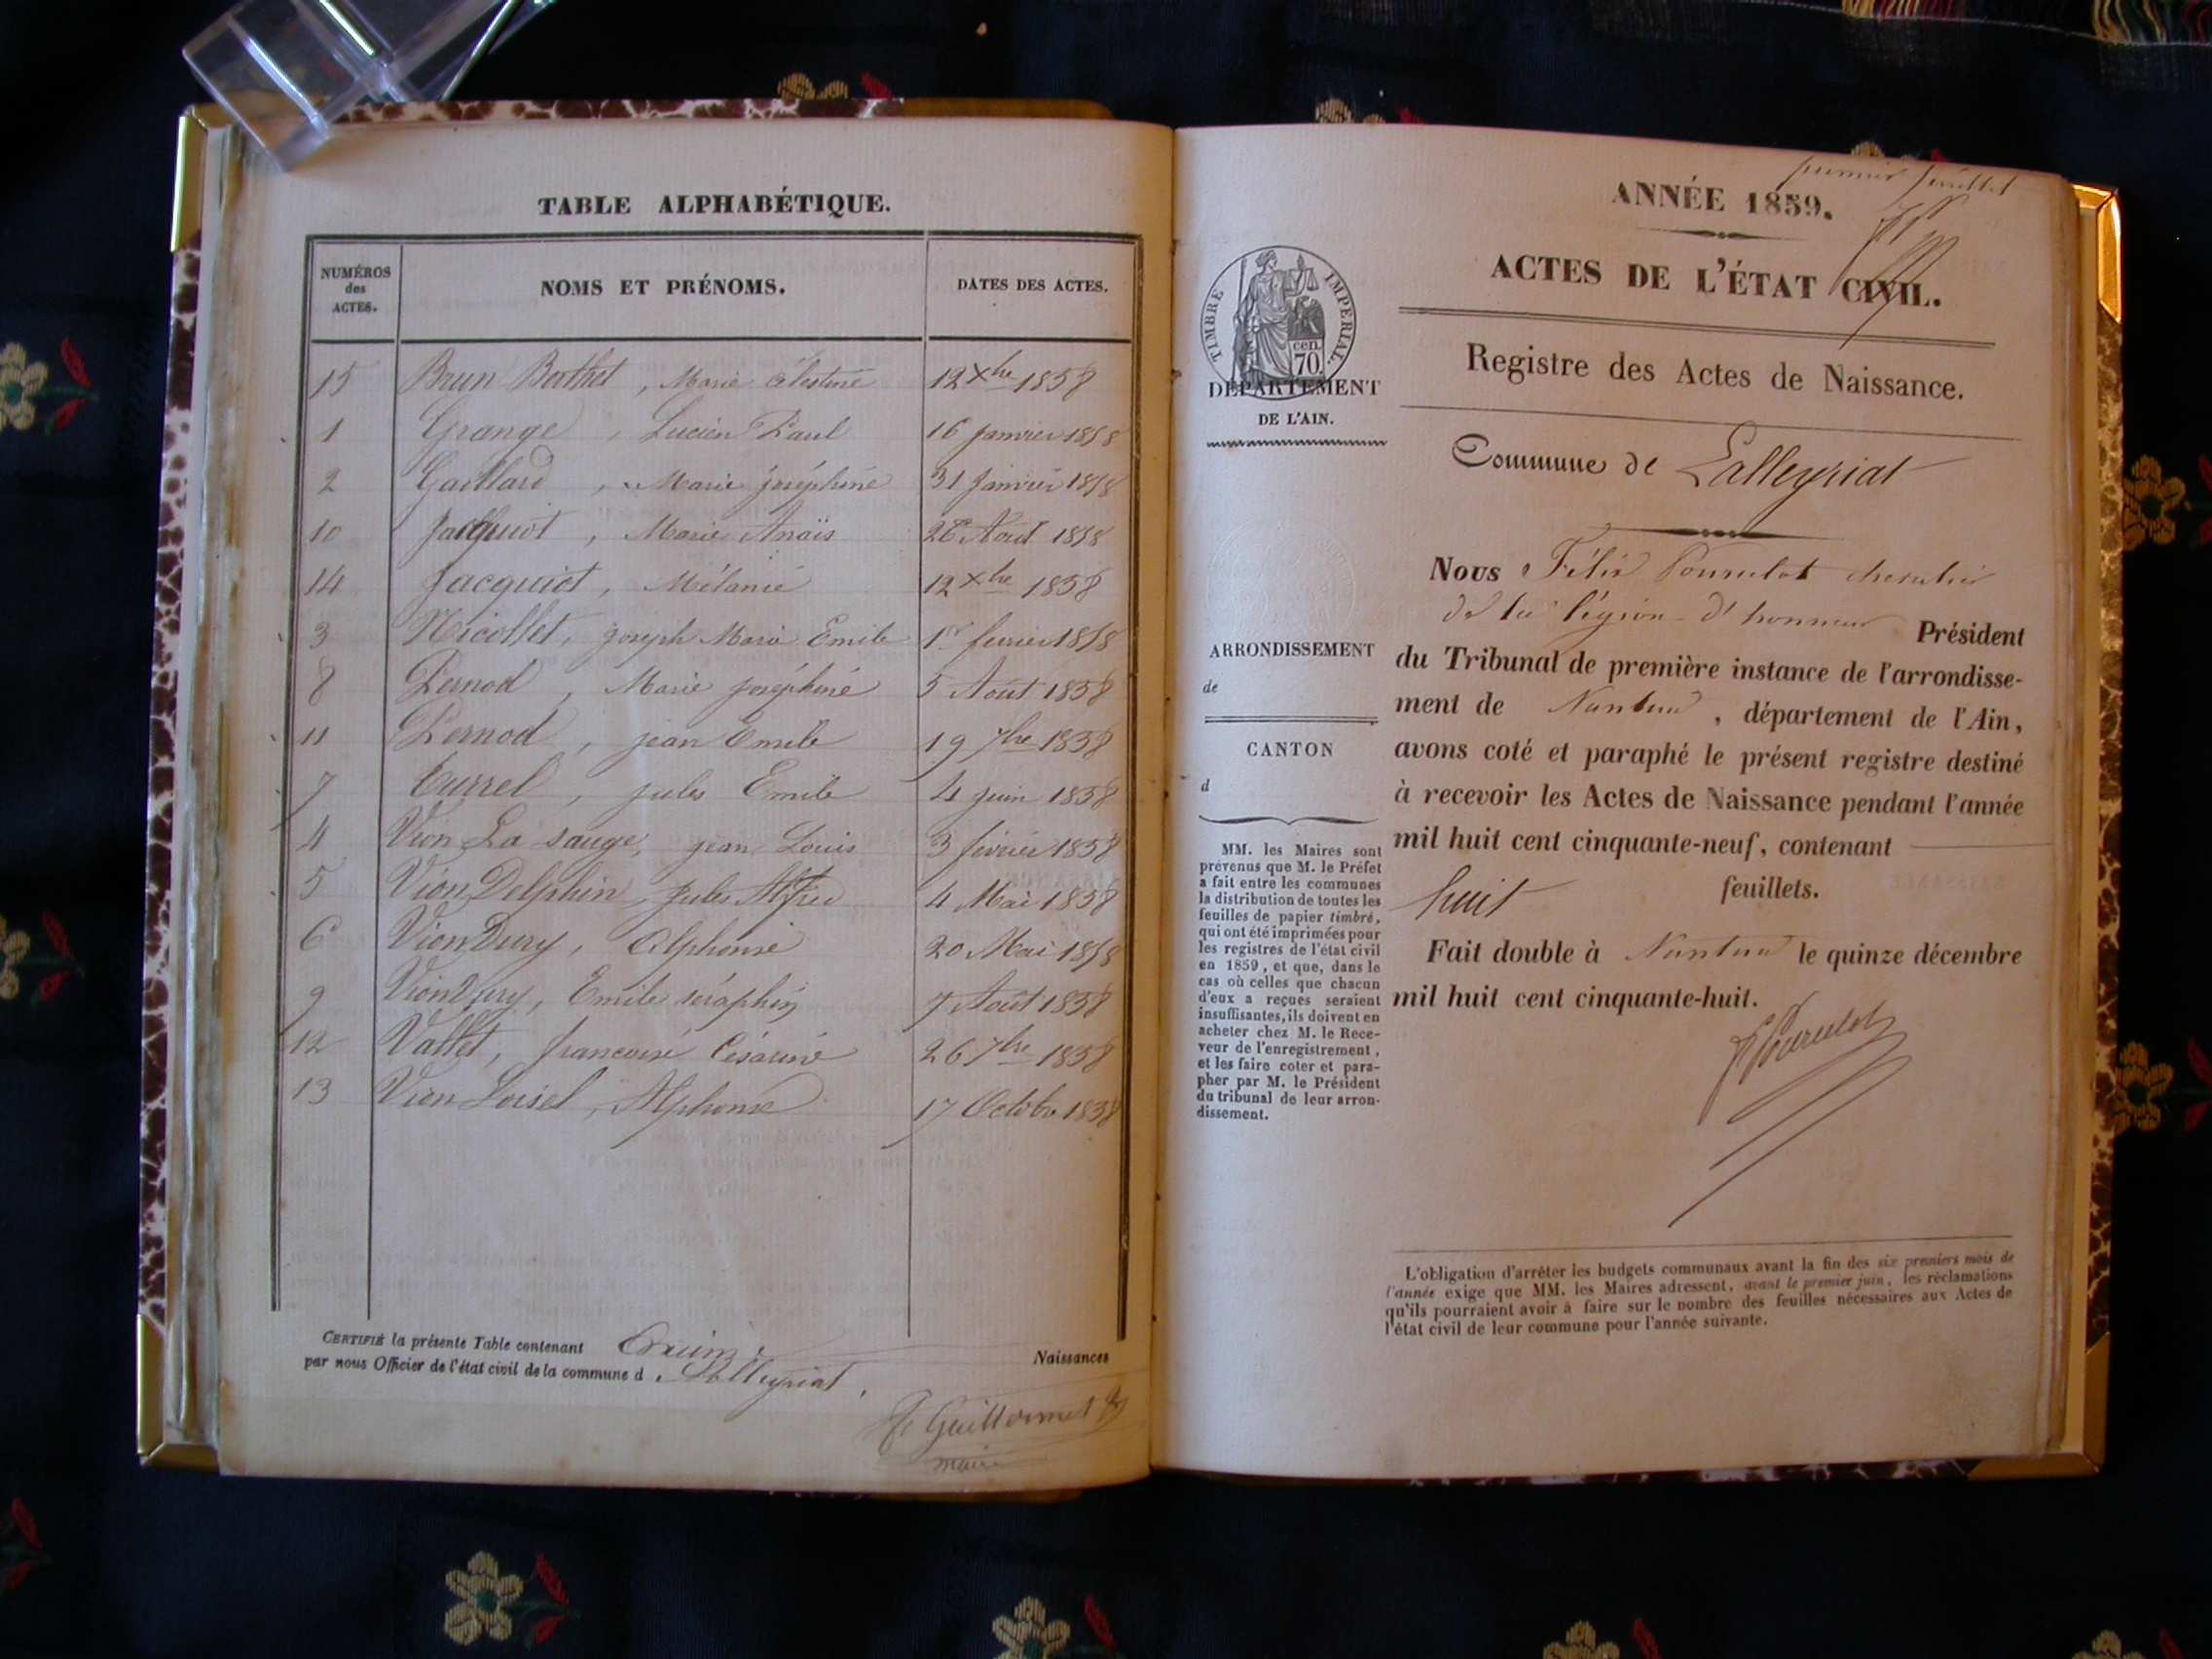 TABLE ALPHABÉTIQUE.
NUMÉROS
des
ACTES.
NOMS ET PRÉNOMS.
DATES DES ACTES.
15 Brun Berthet, Marie Célestine 12 Xbre 1858
1 Grange, Lucien Paul 16 janvier 1858
2 Gaillard, Marie joséphine 31 janvier 1858
10 Jacquiot, Marie Anaïs 26 Août 1858
14 Jacquiot, Mélanie 12 Xbre 1858
3 Nicollet, joseph Marie Emile 1er fevrier 1858
8 Pernod, Marie joséphine 5 Août 1858
11 Pernod, jean Emile 19 7bre 1858
7 Turrel, jules Emile 4 juin 1858
4 Vion La sauge, jean Louis 3 février 1858
5 Vion Delphin, Jules Alfred 4 Mai 1858
6 Vion Dury, Alphonse 20 Mai 1858
9 Vion Dury, Emile séraphin 7 Août 1858
12 Vallet, francoise Césarine 26 7bre 1858
13 Vion Loisel, Alphonse 17 Octobre 1858
CERTIFIÉ la présente Table contenant Naissances
par nous Officier de l'état civil de la commune d Lalleyriat.
Guillermet
maire
premier feuillet
ANNÉE 1859.
ACTES DE L'ÉTAT CIVIL.
TIMBRE IMPERIAL.
cen.
70.
DÉPARTEMENT
DE L'AIN.
Registre des Actes de Naissance.
Commune de Lalleyriat
Nous Félix Pourulot chevalier
de la légion d'honneur Président
du Tribunal de première instance de l'arrondisse-
ment de Nantua, département de l'Ain,
avons coté et paraphé le présent registre destiné
à recevoir les Actes de Naissance pendant l'année
mil huit cent cinquante-neuf, contenant
huit feuillets.
Fait double à Nantua le quinze décembre
mil huit cent cinquante-huit.
ARRONDISSEMENT
de
CANTON
d
MM. les Maires sont
prévenus que M. le Préfet
a fait entre les communes
la distribution de toutes les
feuilles de papier timbré,
qui ont été imprimées pour
les registres de l'état civil
en 1859, et que, dans le
cas où celles que chacun
d'eux a reçues seraient
insuffisantes, ils doivent en
acheter chez M. le Rece-
veur de l'enregistrement,
et les faire coter et para-
pher par M. le Président
du tribunal de leur arron-
dissement.
L'obligation d'arrêter les budgets communaux avant la fin des six premiers mois de
l'année exige que MM. les Maires adressent, avant le premier juin, les réclamations
qu'ils pourraient avoir à faire sur le nombre des feuilles nécessaires aux Actes de
l'état civil de leur commune pour l'année suivante.